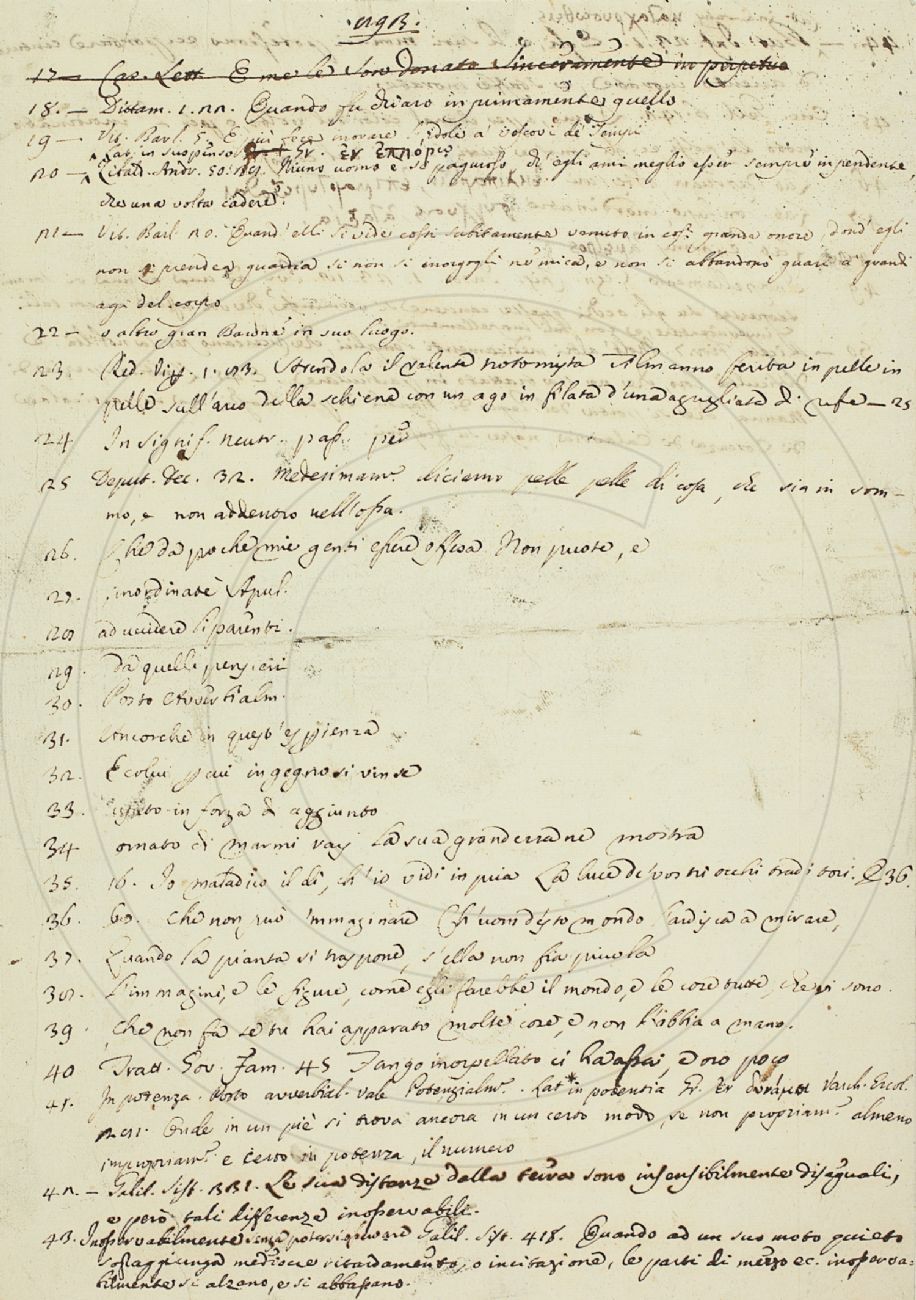 293.
17 — Car. Lett. E me le sono donato sinceramente in perpetuo
18. — Dittam. 1. 22. Quando fu chiaro in primamente quello
19 — Vit. Barl. 5. E più fece trovare l'idoli a vescovi de' Tempi
Lat. in suspenso Gr. ἐν
20 — Cecch. Andr. Niuno uomo è sì pauroso, ch'egli ami meglio esser sempre in pendente,
che una volta cadere.
21 — Vit. Barl. 20. Quand'elli si vide così subitamente venuto in così grande onore, dond'egli
non si prendea guardia si non si inorgoglì né mica, e non si abbandonò guari a' grandi
agi del corpo
22 — o altro gran Barone in suo luogo.
23. Red. 1. 83. il valente notomista Almanno feriva in pelle in
pelle sull'arco della schiena con un ago infilato d'una agugliata di refe — 25
24 In signif. neutr. pass. per
25 Deput. Dec. 32. Medesimam. diciamo pelle pelle di cosa, che sia in som-
mo, e non addentro nell'ossa.
26. Che da poche mie genti essere offesa Non puote, e
27. inordinate Apul.
28 ad uccidere li parenti.
29. da quelli pensieri
30. Posto Avverbialm.
31. Ancorchè in quest'
32. E colui più ingegno si vinse
33. in forza di aggiunto
34 ornato di marmi vaj La sua grandezza ne mostra
35. 16. Io maladico il dì, ch'io vidi in pria La luce de' vostri occhi traditori. 36.
36. 60. Che non può immaginare Ch'uom d'esto mondo l'ardisca a mirare,
37. Quando la pianta si traspone, s'ella non fia piccola
38. L'immagini, e le figure, come egli farebbe il mondo, e le cose tutte, che vi sono.
39. Che non fa se tu hai apparato molte cose, e non l'abbia a mano.
40 Tratt. Gov. Fam. 45 Fango inorpellato ci ha assai, e oro poco
41. In potenza. Posto avverbial. vale Potenzialm. Lat. in potentia Gr. Varch. Ercol.
281. Onde in un piè si trova ancora in un certo modo, se non propriam. almeno
impropriam. e certo in potenza, il numero
42. — Galil. Sist. 331. Le sua distanze dalla terra sono insensibilmente disuguali,
e però tali differenze inosservabili.
43. Inosservabilmente senza potersi Galil. Sist. 418. Quando ad un suo moto quieto
sopraggiunga mediocre ritardamento, o incitazione, le parti di mezzo ec. inosserva-
bilmente si alzano, e si abbassano.